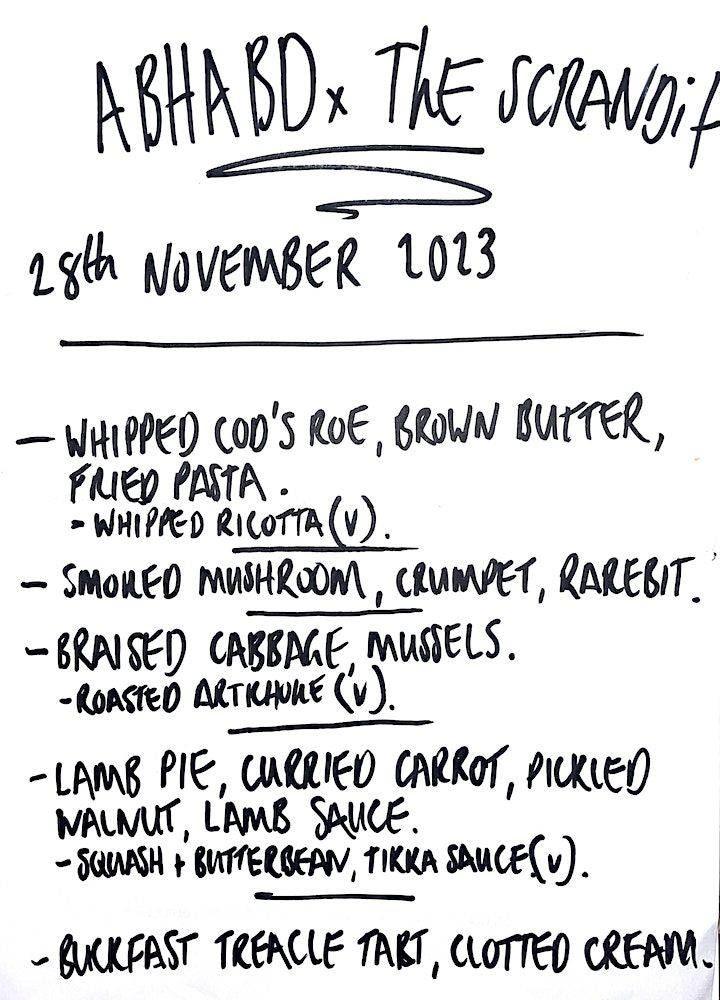 ABHABD x THE SCRANDit
28th NOVEMBER 2023
— WHIPPED COD'S ROE, BROWN BUTTER,
FRIED PASTA.
- WHIPPED RICOTTA (V).
- SMOKED MUSHROOM, CRUMPET, RAREBIT.
- BRAISED CABBAGE, MUSSELS.
- ROASTED ARTICHOKE (V).
- LAMB PIE, CURRIED CARROT, PICKLED
WALNUT, LAMB SAUCE.
- SQUASH + BUTTERBEAN, TIKKA SAUCE (V).
- BUCKFAST TREACLE TART, CLOTTED CREAM.